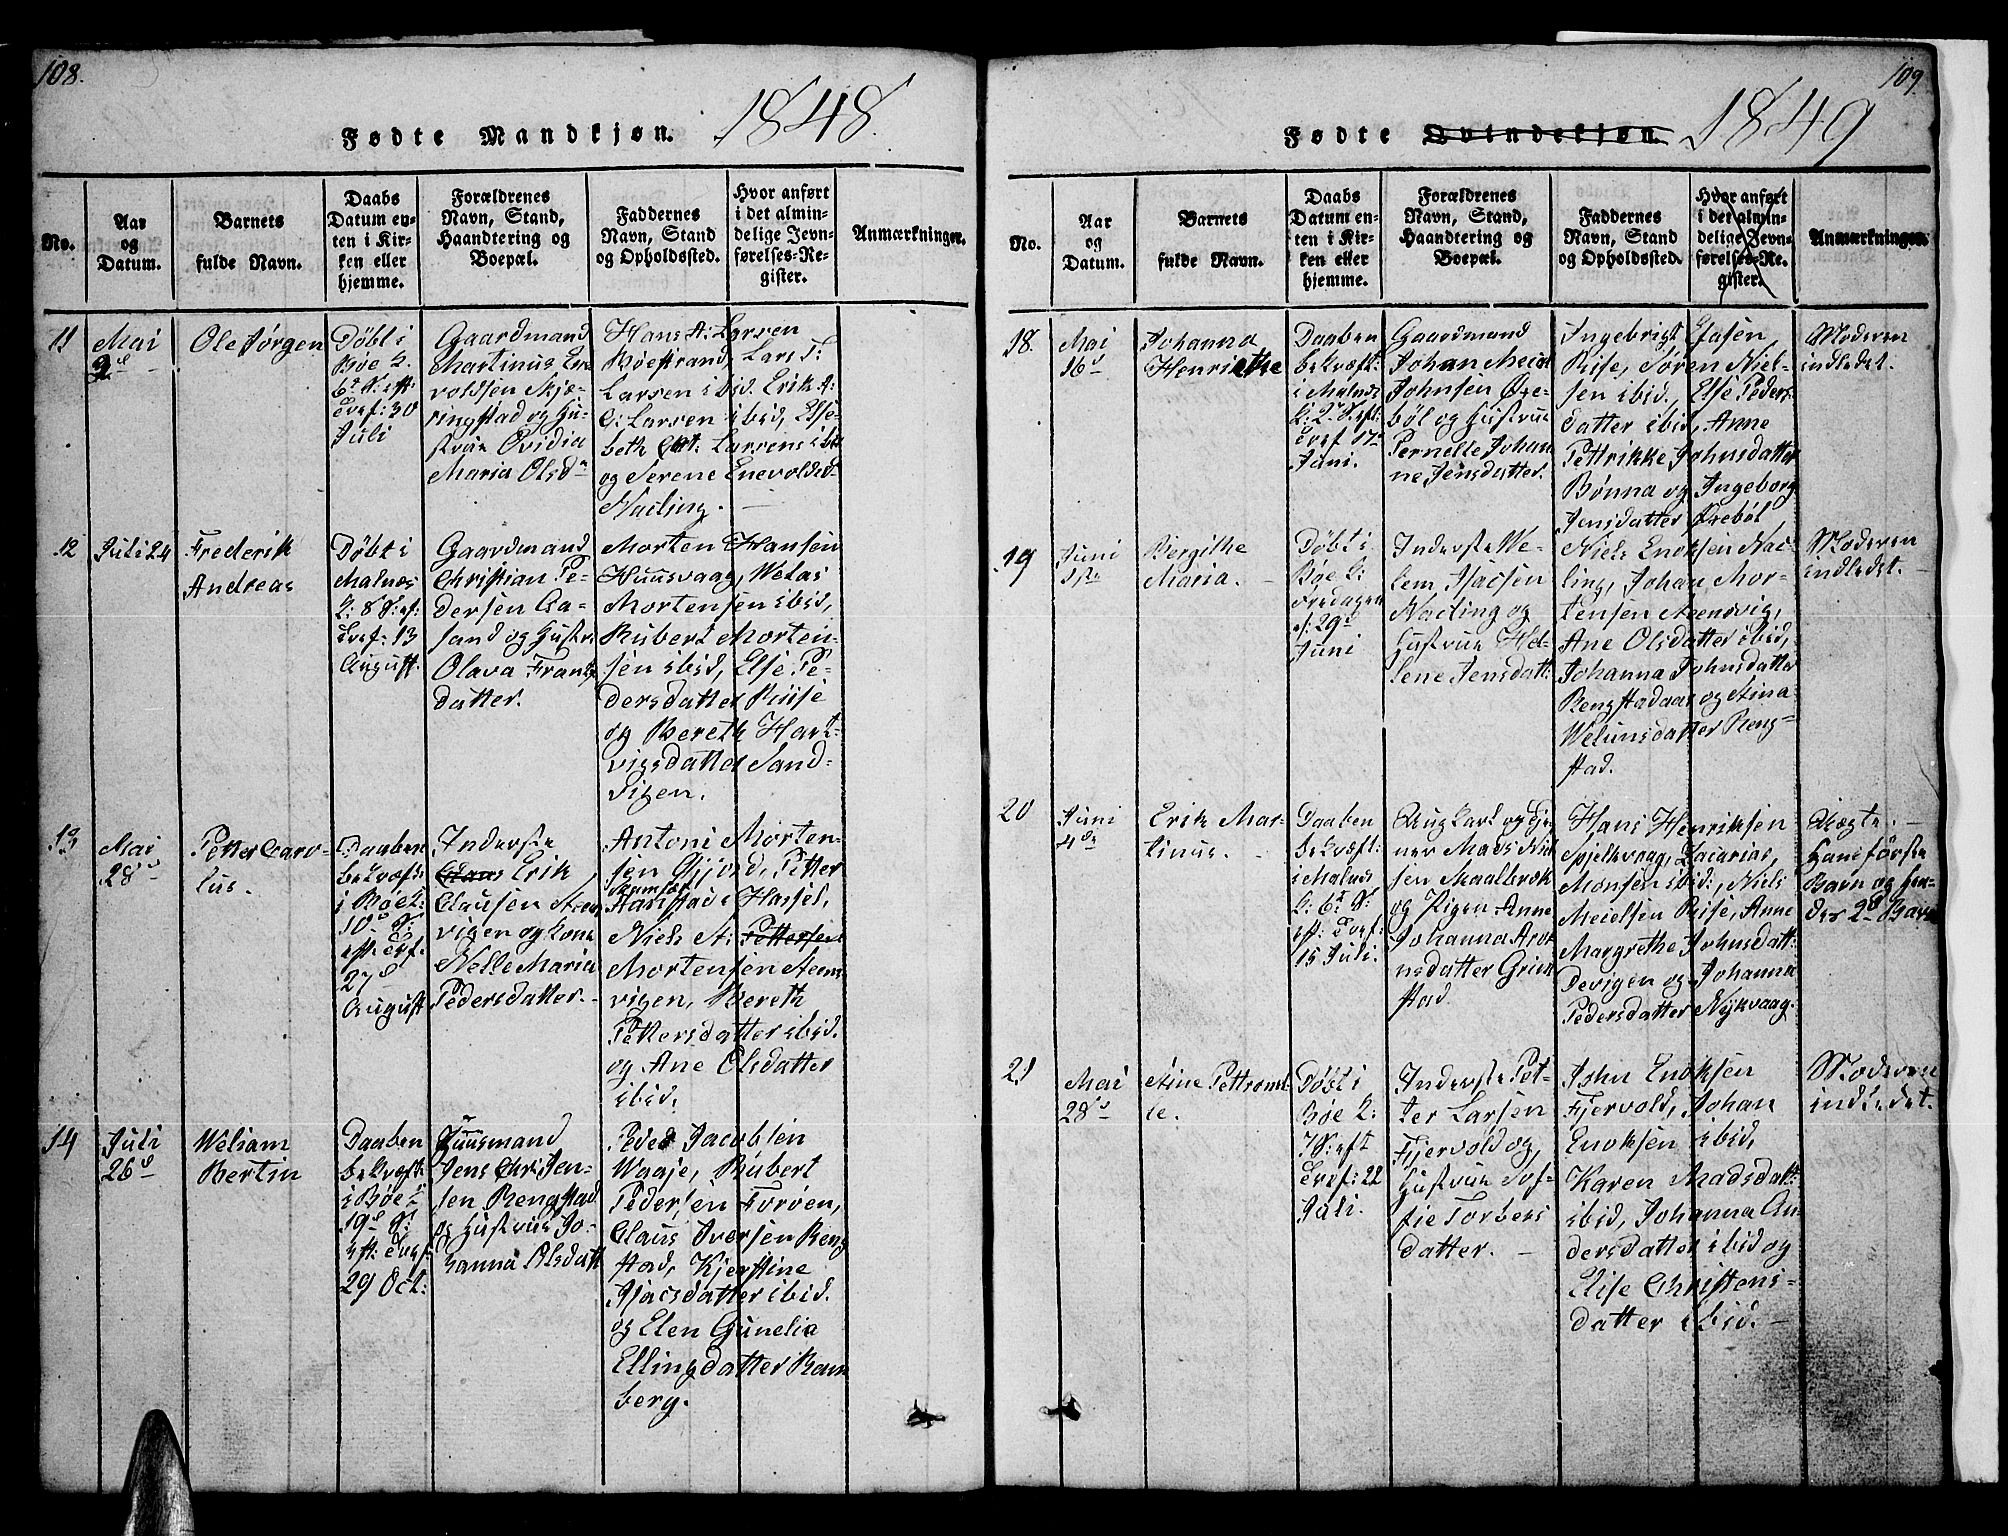 108.
1848.
Fødte Mandkjøn.
No.
Aar
og
Datum.
Barnets
fulde Navn.
Daabs
Datum en-
ten i Kir-
ken eller
hjemme.
Forældrenes
Navn, Stand,
Haandtering og
Boepæl.
Faddernes
Navn, Stand
og Opholdssted.
Hvor anført
i det almin-
delige Jevn-
førelses-Re-
gister.
Anmærkninger.
11
Mai
Ole Jørgen
Døbt i
Bøe
Juli
Gaardmand
Martinus
voldsen Skjæ-
ringstad og Hu-
strue Ovidia
Maria Olsd
Hans A: Larsen
Bøestrand, Lars
Larsen ibid, Erik
Larsen ibid, Else-
beth Larsens ibid
og Serene Enevoldsd
Nailing.
12
Juli 24
Frederik
Andreas
Døbt i
Malnæs
13
August.
Gaardmand
Christian Pe-
dersen Aa-
sand og Hustr
Olava Frantz
datter.
Morten Hansen
Huusvaag, Welas
Mortensen ibid,
Rubert Morten-
sen ibid, Else Pe-
dersdatter Riise
og Bereth Hart-
vigsdatter Sand-
vigen.
13
Mai
28
Petter Caro-
lus.
Daaben
bekræft:
i Bøe
27
August
Inderste
Erik
Clausen Steens
vigen og Kone
Nelle Maria
Pedersdatter.
Antoni Morten-
sen Petter
Hassel,
Niels A: Pettersen
Mortensen Steens
vigen, Bereth
Pettersdatter ibid.
og Ane Olsdatter
ibid.
14
Juli
26
Weliam
Bertin
Daaben
bekræft:
i Bøe
29 Oct:
Huusmand
Jens Christen-
sen Rengstad
og Hustrue Jo-
hanna Olsdatt
Peder Jacobsen
Waaje, Rubert
Pedersen Forøen,
Claus Iversen Reng
stad, Kjerstine
Isacsdatter ibid.
og Elen Gunelia
Ellingsdatter Ravn
berg.
109.
1849
Fødte Qvindekjøn.
No.
Aar
og
Datum.
Barnets
fulde Navn.
Daabs
Datum en-
ten i Kir-
ken eller
hjemme.
Forældrenes
Navn, Stand,
Haandtering og
Boepæl.
Faddernes
Navn, Stand
og Opholdssted.
Hvor anført
i det almin-
delige Jevn-
førelses-Re-
gister.
Anmærkninger.
18.
Mai
16
Johanna
Henrikke
Daaben
bekræft:
i Malnæs
Juni.
Gaardmand
Johan
Johnsen Øre-
bøl og Hustrue
Pernelle Johan
ne Jensdatter.
Ingebrigt Esasen
Riise, Søren Niel-
sen ibid, Else Peders
datter ibid, Anne
Pettrikke Johnsdatter
Bønna og Ingeborg
Jensdatter Ørebøl
Moderen
indledet.
19
Juni
1ste
Bergithe
Maria.
Døbt i
Bøe
Fredagen
29
Juni
Inderste We-
lem Isacsen
Nailing og
Hustrue He-
lene Jensdatt:
Niels Enoksen Nai-
ling, Johan Mor-
tensen Steensvig,
Ane Olsdatter ibid,
Johanna Johnsdatter
Rengstadaas og Stina
Weliamsdatter Reng-
stad.
Moderen
indledet.
20
Juni
4de
Erik Mar-
tinus.
Daaben
bekræft:
i Malnæs
15 Juli.
Ungkarl og Tje-
ner Mads Niel
sen Maalbræk
og Pigen Anne
Johanna Aro
nsdatter Grim
stad.
Hans Henriksen
Spjelkvaag, Zacarias
Monsen ibid, Niels
Meielsen Riise, Anne
Margrethe Johnsdatt:
Devigen og Johanna
Pedersdatter Nykvaag.
Uægte.
Hans første
Barn og hen-
des 2 Barn
21
Mai
28
Stine Pettronel
le.
Døbt i
Bøe
22
Juli.
Inderste Pet-
ter Larsen
Fjervold og
Hustrue Sof-
fie Torbers
datter.
John Enoksen
Fjervold, Johan
Enoksen ibid,
Karen Madsdatt:
ibid, Johanna An
dersdatter ibid og
Elise Christens-
datter ibid.
Moderen
indledet.